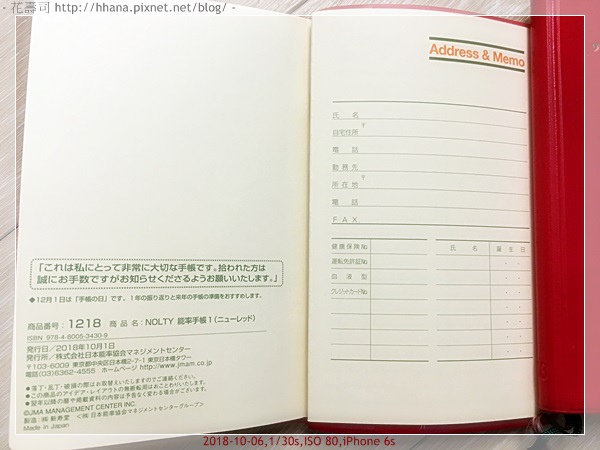 - 花壽司 http://hhana.pixnet.net/blog/ -
「これは私にとって非常に大切な手帳です。拾われた方は
誠にお手数ですがお知らせくださるようお願いいたします。」
◆12月1日は「手帳の日」です。1年の振り返りと来年の手帳の準備をおすすめします。
商品番号：1218 商品名：NOLTY 能率手帳1（ニューレッド）
ISBN 978-4-8005-3430-9
発行日／2018年10月1日
発行所／株式会社日本能率協会マネジメントセンター
〒103-6009 東京都中央区日本橋2-7-1 東京日本橋タワー
電話(03)6362-4555 ホームページ http://www.jmam.co.jp
●落丁・乱丁・破損の際はお取替えいたしますのでご連絡ください。
●この商品のアイデア・レイアウトの無断転用はおことわりいたします。
●翌年以降の暦や掲載資料の内容は予告なく変わる場合がございます。
©JMA MANAGEMENT CENTER INC.
製造：㈱新寿堂 〈㈱日本能率協会マネジメントセンターグループ〉
Made in Japan
Address & Memo
氏名
自宅住所 〒
電話
勤務先
所在地 〒
電話
FAX
健康保険No.
運転免許証No.
血液型
クレジットカードNo.
氏名 誕生日
2018-10-06,1/30s,ISO 80,iPhone 6s